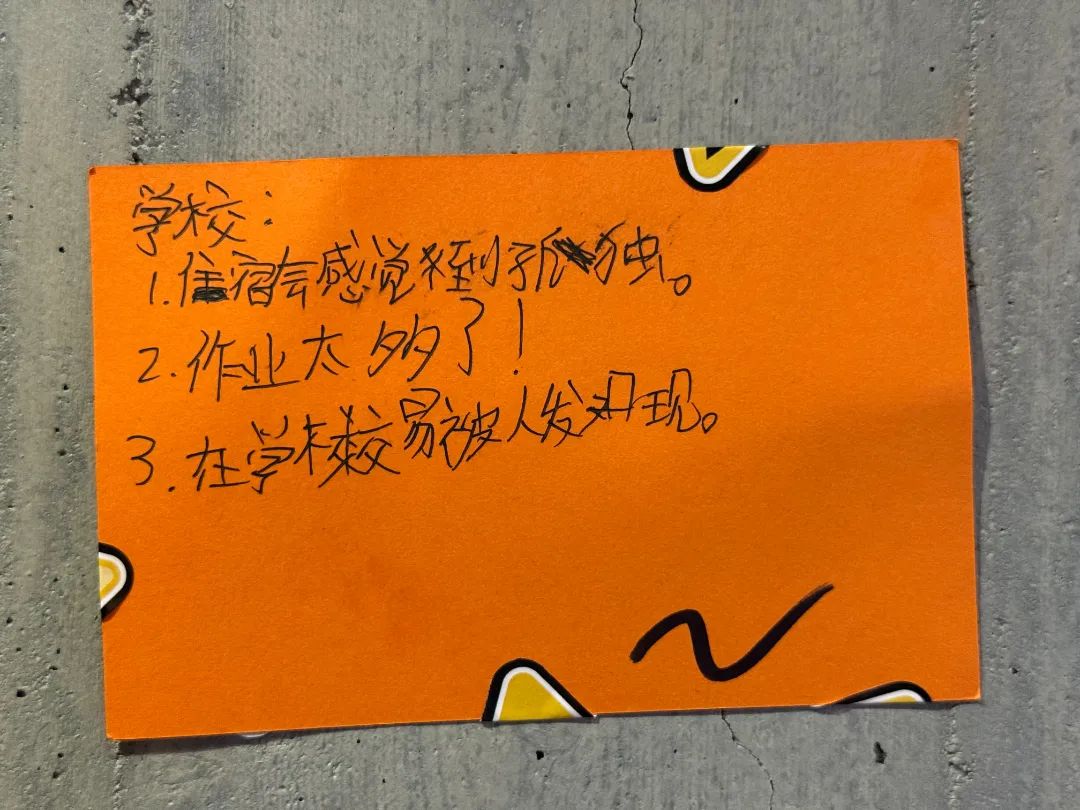 学校：
1.住宿会感觉到孤独。
2.作业太多了！
3.在学校易被人发现。